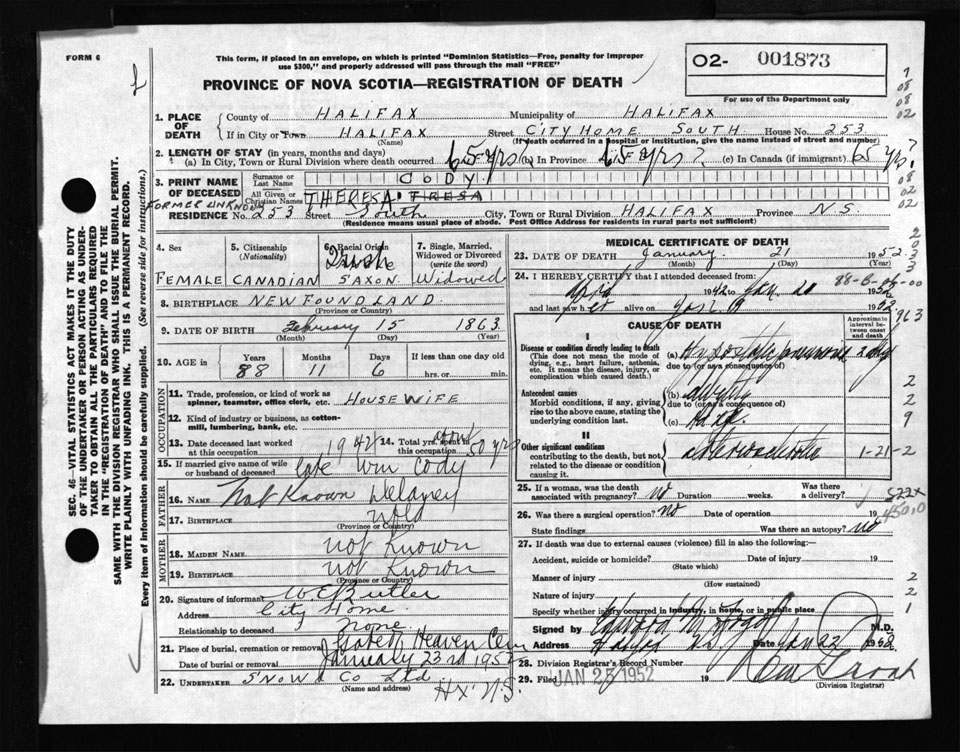 FORM 6
This form, if placed in an envelope, on which is printed "Dominion Statistics—Free, penalty for improper
use $300," and properly addressed will pass through the mail "FREE"
PROVINCE OF NOVA SCOTIA—REGISTRATION OF DEATH
02- 001873
For use of the Department only
1. PLACE OF DEATH
County of HALIFAX Municipality of HALIFAX
If in City or Town HALIFAX Street CITY HOME SOUTH House No. 253
(Name) (If death occurred in a hospital or institution, give the name instead of street and number)
2. LENGTH OF STAY (in years, months and days)
(a) In City, Town or Rural Division where death occurred 65 yrs (b) In Province 65 yrs? (c) In Canada (if immigrant) 65 yrs?
3. PRINT NAME OF DECEASED
Surname or Last Name CODY
All Given or Christian Names THERESA TERESA
FORMER UNKNOWN
RESIDENCE No. 253 Street South City, Town or Rural Division HALIFAX Province N S
(Residence means usual place of abode. Post Office Address for Residents in rural parts not sufficient)
4. Sex FEMALE
5. Citizenship (Nationality) CANADIAN
6. Racial Origin Irish SAXON
7. Single, Married, Widowed or Divorced (write the word) Widowed
8. BIRTHPLACE NEWFOUNDLAND
(Province or Country)
9. DATE OF BIRTH February 15 1863
(Month) (Day) (Year)
10. AGE in Years 88 Months 11 Days 6 If less than one day old hrs. or min.
OCCUPATION
11. Trade, profession, or kind of work as spinner, teamster, office clerk, etc. HOUSEWIFE
12. Kind of industry or business, as cotton-mill, lumbering, bank, etc.
13. Date deceased last worked at this occupation 1942 14. Total yrs. spent in this occupation about 50 yrs
15. If married give name of wife or husband of deceased late Wm Cody
FATHER
16. NAME Not Known Delaney
17. BIRTHPLACE Nfld
(Province or Country)
MOTHER
18. MAIDEN NAME not Known
19. BIRTHPLACE not Known
(Province or Country)
20. Signature of informant W. E. Butler
Address City Home
Relationship to deceased None
21. Place of burial, cremation or removal Gate of Heaven Cem
Date of burial or removal January 23rd 1952
22. UNDERTAKER SNOW & Co Ltd
(Name and address) Hx N.S.
MEDICAL CERTIFICATE OF DEATH
23. DATE OF DEATH January 21 1952
(Month) (Day) (Year)
24. I HEREBY CERTIFY that I attended deceased from:
April 1942 to Jan. 20 1952
and last saw her alive on Jan. 1952
CAUSE OF DEATH
Approximate interval between onset and death
I
Disease or condition directly leading to death
(This does not mean the mode of dying, e.g., heart failure, asthenia, etc. It means the disease, injury, or complication which caused death.)
(a) Hypostatic pneumonia 2 days
due to (or as a consequence of)
Antecedent causes
Morbid conditions, if any, giving rise to the above cause, stating the underlying condition last.
(b)
due to (or as a consequence of)
(c)
II
Other significant conditions
contributing to the death, but not related to the disease or condition causing it.
1-21-2
25. If a woman, was the death associated with pregnancy? No Duration weeks. Was there a delivery?
522x
26. Was there a surgical operation? No Date of operation 19
450.0
State findings Was there an autopsy? No
27. If death was due to external causes (violence) fill in also the following:—
Accident, suicide or homicide? Date of injury 19
(State which)
Manner of injury
(How sustained)
Nature of injury
Specify whether injury occurred in industry, in home, or in public place
Signed by Edward M. M.D.
Address Halifax N.S. Date Jan 22 1952
28. Division Registrar's Record Number
29. Filed JAN 25 1952 19
(Division Registrar)
SEC. 46—VITAL STATISTICS ACT MAKES IT THE DUTY
OF THE UNDERTAKER OR PERSON ACTING AS UNDER-
TAKER TO OBTAIN ALL THE PARTICULARS REQUIRED
IN THE "REGISTRATION OF DEATH" AND TO FILE THE
SAME WITH THE DIVISION REGISTRAR WHO SHALL ISSUE THE BURIAL PERMIT.
WRITE PLAINLY WITH UNFADING INK. THIS IS A PERMANENT RECORD.
Every item of information should be carefully supplied. (See reverse side for instructions.)